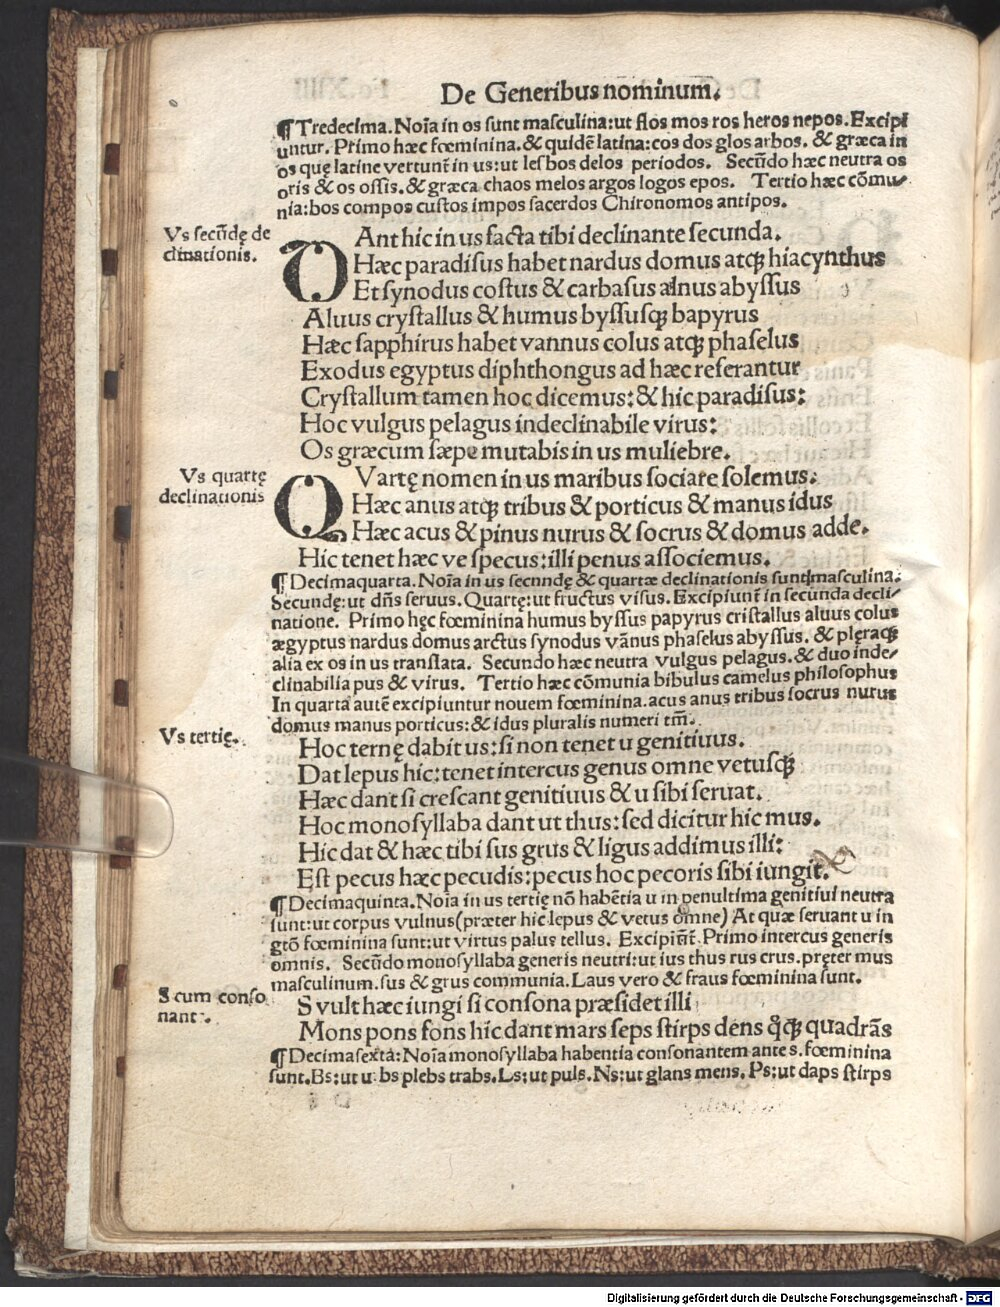 De Generibus nominum.
¶ Tredecima. Noĩa in os sunt masculina: ut flos mos ros heros nepos. Excipi
untur. Primo hæc fœminina. & quidē latina: cos dos glos arbos. & græca in
os quę latine vertunt̃ in us: ut lesbos delos periodos. Secūdo hæc neutra os
oris & os ossis. & græca chaos melos argos logos epos. Tertio hæc cōmu⸗
nia: bos compos custos impos sacerdos Chironomos antipos.
Vs secūdę de
clinationis.
DAnt hic in us facta tibi declinante secunda.
Hæc paradisus habet nardus domus atq; hiacynthus
Et synodus costus & carbasus alnus abyssus
Aluus crystallus & humus byssusq; bapyrus
Hæc sapphirus habet vannus colus atq; phaselus
Exodus egyptus diphthongus ad hæc referantur
Crystallum tamen hoc dicemus: & hic paradisus:
Hoc vulgus pelagus indeclinabile virus:
Os græcum sæpe mutabis in us muliebre.
Vs quartę
declinationis
QVartę nomen in us maribus sociare solemus:
Hæc anus atq; tribus & porticus & manus idus
Hæc acus & pinus nurus & socrus & domus adde.
Hic tenet hæc ve specus: illi penus associemus.
¶ Decimaquarta. Noĩa in us secnndę & quartæ declinationis sunt masculina.
Secundę: ut dn̄s seruus. Quartę: ut fructus visus. Excipiunt̃ in secunda decli⸗
natione. Primo hęc fœminina humus byssus papyrus cristallus aluus colus
ægyptus nardus domus arctus synodus vānus phaselus abyssus. & plęraq;
alia ex os in us translata. Secundo hæc neutra vulgus pelagus. & duo inde⸗
clinabilia pus & virus. Tertio hæc cōmunia bibulus camelus philosophus
In quarta autē excipiuntur nouem fœminina. acus anus tribus socrus nurus
domus manus porticus: & idus pluralis numeri tm̄.
Vs tertię.
Hoc ternę dabit us: si non tenet u genitiuus.
Dat lepus hic: tenet intercus genus omne vetusq;
Hæc dant si crescant genitiuus & u sibi seruat.
Hoc monosyllaba dant ut thus: sed dicitur hic mus.
Hic dat & hæc tibi sus grus & ligus addimus illi:
Est pecus hæc pecudis: pecus hoc pecoris sibi iungit.
¶ Decimaquinta. Noĩa in us tertię nō habētia u in penultima genitiui neutra
sunt: ut corpus vulnus (præter hic lepus & vetus omne) At quæ seruant u in
gtō fœminina sunt: ut virtus palus tellus. Excipiūt̃. Primo intercus generis
omnis. Secūdo monosyllaba generis neutri: ut ius thus rus crus. pręter mus
masculinum. sus & grus communia. Laus vero & fraus fœminina sunt.
S cum conso
nante.
S vult hæc iungi si consona præsidet illi
Mons pons fons hic dant mars seps stirps dens q̊q; quadrās
¶ Decimasexta: Noĩa monosyllaba habentia consonantem ante s. fœminina
sunt. Bs: ut urbs plebs trabs. Ls: ut puls. Ns: ut glans mens. Ps: ut daps stirps
Digitalisierung gefördert durch die Deutsche Forschungsgemeinschaft - DFG